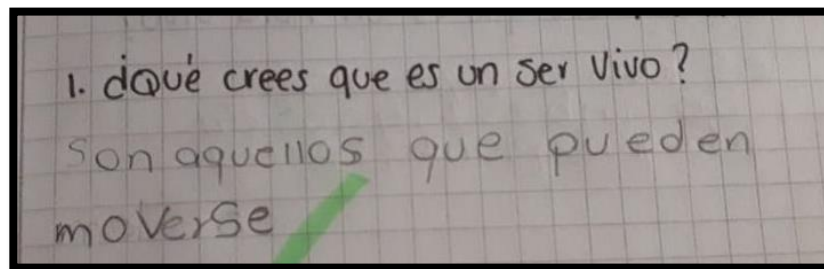 1. ¿Qué crees que es un ser vivo?
son aquellos que pueden
moverse